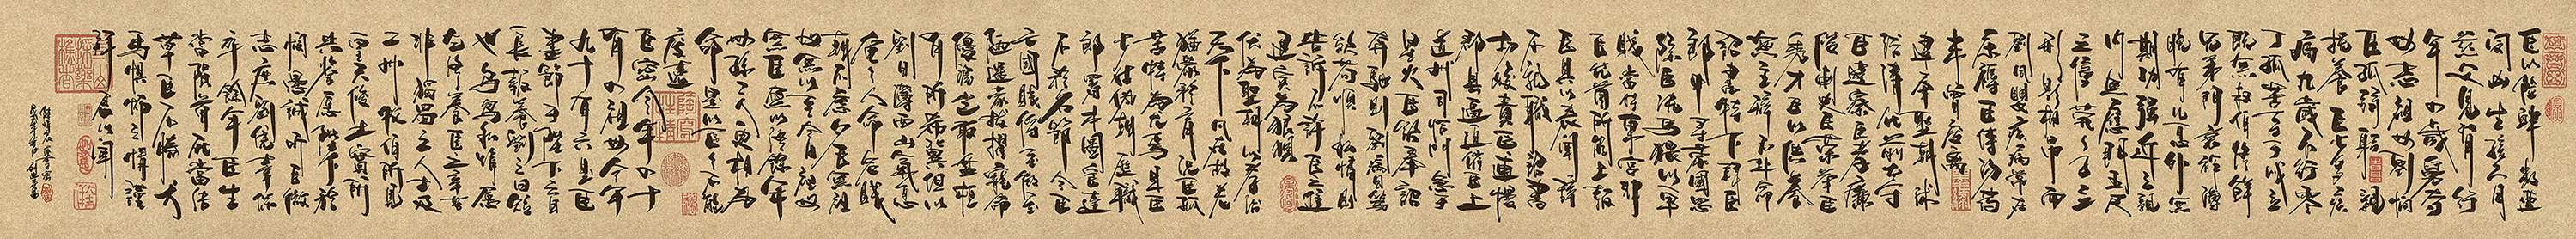 臣以險釁夙遭
閔凶生孩六月
慈父見背行
年四歲舅奪
母志祖母劉憫
臣孤弱躬親
撫養臣少多疾
病九歲不行零
丁孤苦至于成立
既無叔伯終鮮
兄弟門衰祚薄
晚有兒息外無
期功強近之親
内無應門五尺
之僮煢煢孑立
形影相吊而
劉夙嬰疾病常在
床蓐臣侍湯藥
未曾廢離
逮奉聖朝沐
浴清化前太守
臣逵察臣孝廉
後刺史臣榮舉臣
秀才臣以供養
無主辭不赴命
詔書特下拜臣
郎中尋蒙國恩
除臣洗馬猥以微
賤當侍東宫非
臣隕首所能上報
臣具以表聞辭
不就職詔書
切峻責臣逋慢
郡縣逼迫催臣上
道州司臨門急于
星火臣欲奉詔
奔馳則劉病日篤
欲苟順私情則
告訴不許臣之進
退實爲狼狽
伏惟聖朝以孝治
天下凡在故老
猶蒙矜育況臣孤
苦特爲尤甚且臣
少仕偽朝歷職
郎署本圖宦達
不矜名節今臣
亡國賤俘至微至
陋過蒙拔擢寵命
優渥豈敢盤桓
有所希冀但以
劉日薄西山氣息
奄奄人命危淺
朝不慮夕臣無祖
母無以至今日祖母
無臣無以終餘年
母孫二人更相爲
命是以區區不能
廢遠
臣密今年四十
有四祖母今年
九十有六是臣
盡節于陛下之日
長報養劉之日短
也烏鳥私情願
乞終養臣之辛苦
非獨蜀之人士及
二州牧伯所見
皇天后土實所
共鑒願陛下矜
憫愚誠聽臣微
志庶劉僥幸保
卒餘年臣生
當隕首死當結
草臣不勝犬
馬惧怖之情謹
拜表以聞